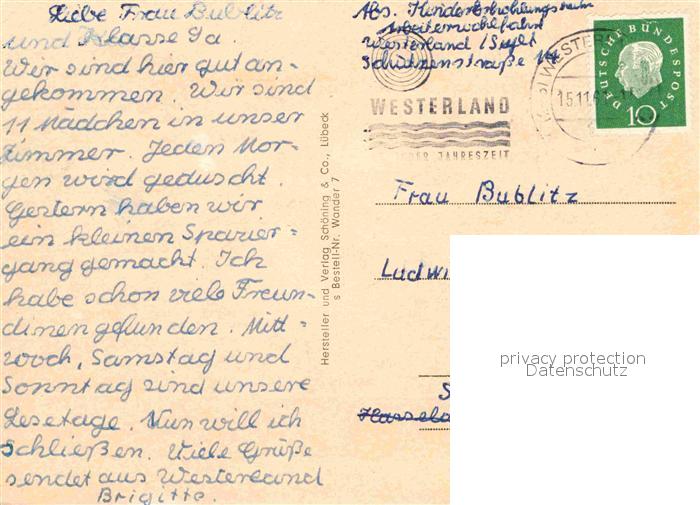 Liebe Frau Bublitz
und Klasse 9a
Wir sind hier gut an-
gekommen. Wir sind
11 Mädchen in unser
Zimmer. Jeden Mor-
gen wird geduscht.
Gestern haben wir
ein kleinen Spazier-
gang gemacht. Ich
habe schon viele Freun-
dinen gefunden. Mitt-
woch, Samstag und
Sonntag sind unsere
Lesetage. Nun will ich
schließen. Viele Grüße
sendet aus Westerland
Brigitte.
Hersteller und Verlag Schöning & Co., Lübeck
s Bestell-Nr. Wander 7
Abs. Kindererholungsheim
Arbeiterwohlfahrt
Westerland / Sylt
Schützenstraße
WESTERLAND
JAHRESZEIT
WESTER
15.11.6
DEUTSCHE BUNDESPOST
10
Frau Bublitz
Ludwi
S
Hasselb
privacy protection
Datenschutz